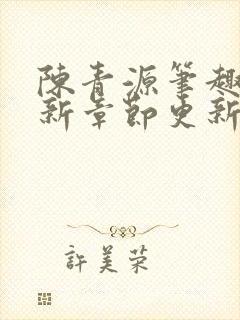 陳青源筆趣
新章節更新
許美榮